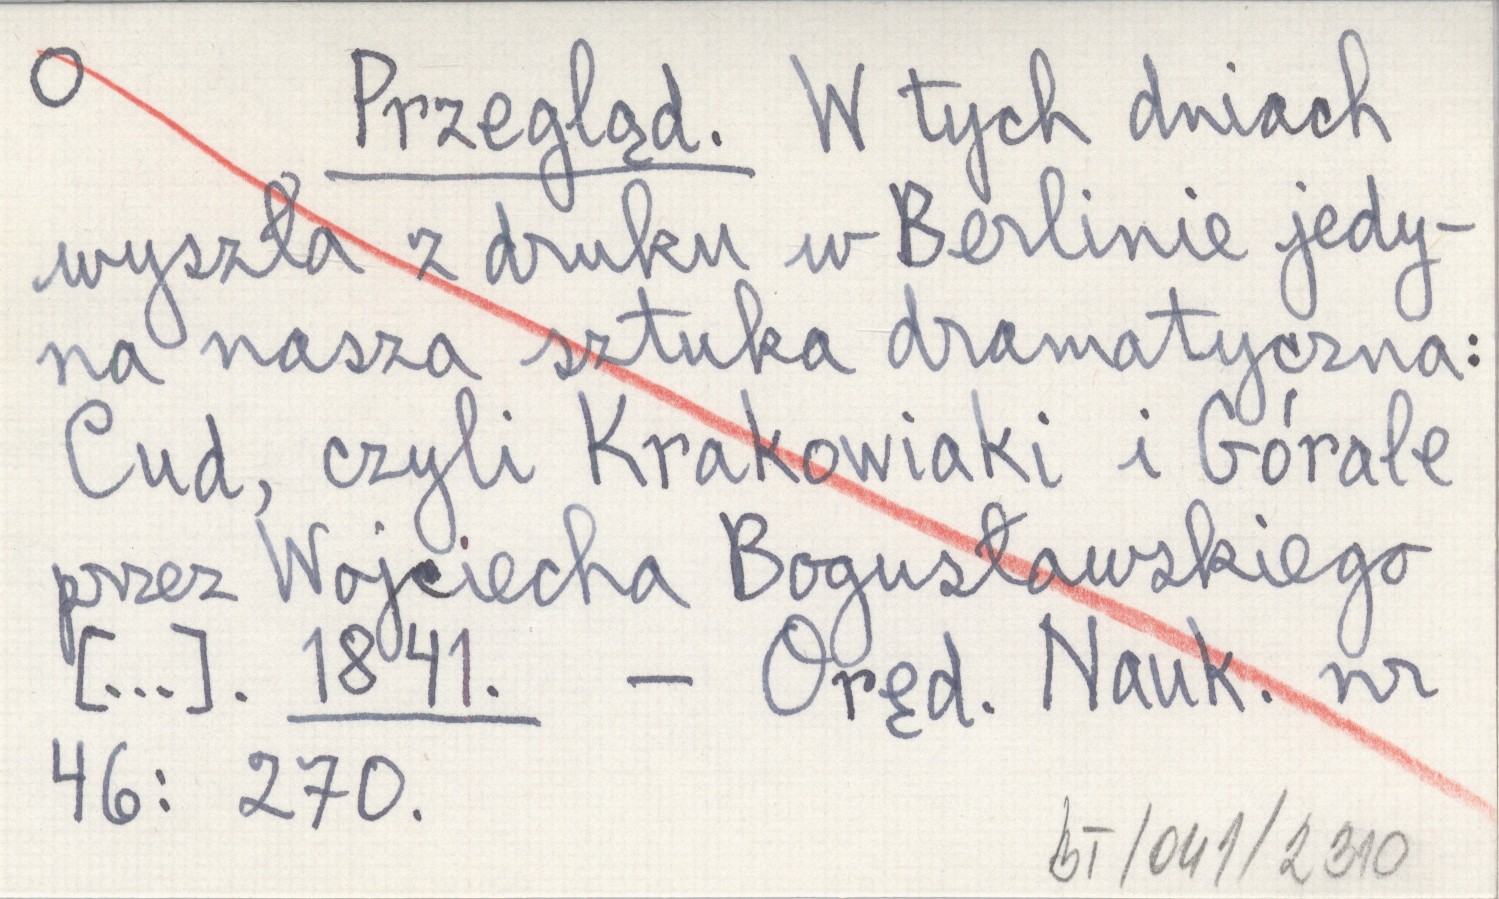 O Przegląd. W tych dniach
wyszła z druku w Berlinie jedy-
na nasza sztuka dramatyczna:
Cud, czyli Krakowiaki i Górale
przez Wojciecha Bogusławskiego
[...]. 1841. — Oręd. Nauk. nr
46: 270.
BT/041/2310